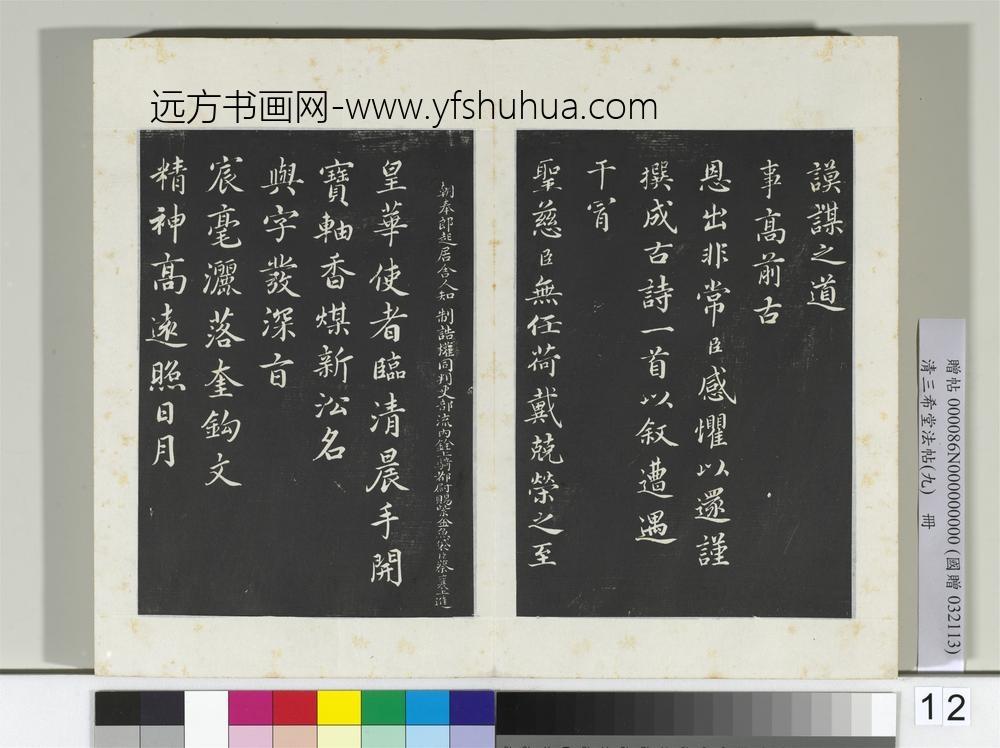 远方书画网-www.yfshuhua.com
謨謀之道
事髙前古
恩出非常臣感懼以還謹
撰成古詩一首以叙遭遇
干冐
聖慈臣無任荷戴兢榮之至
朝奉郎起居舍人知 制誥權同判吏部流内銓上騎都尉賜紫金魚袋臣蔡襄上進
皇華使者臨清晨手開
寶軸香煤新沄名
與字發深旨
宸毫灑落奎鈎文
精神髙逺照日月
贈帖 000086N000000000 (國贈 032113)
清三希堂法帖(九) 冊
12